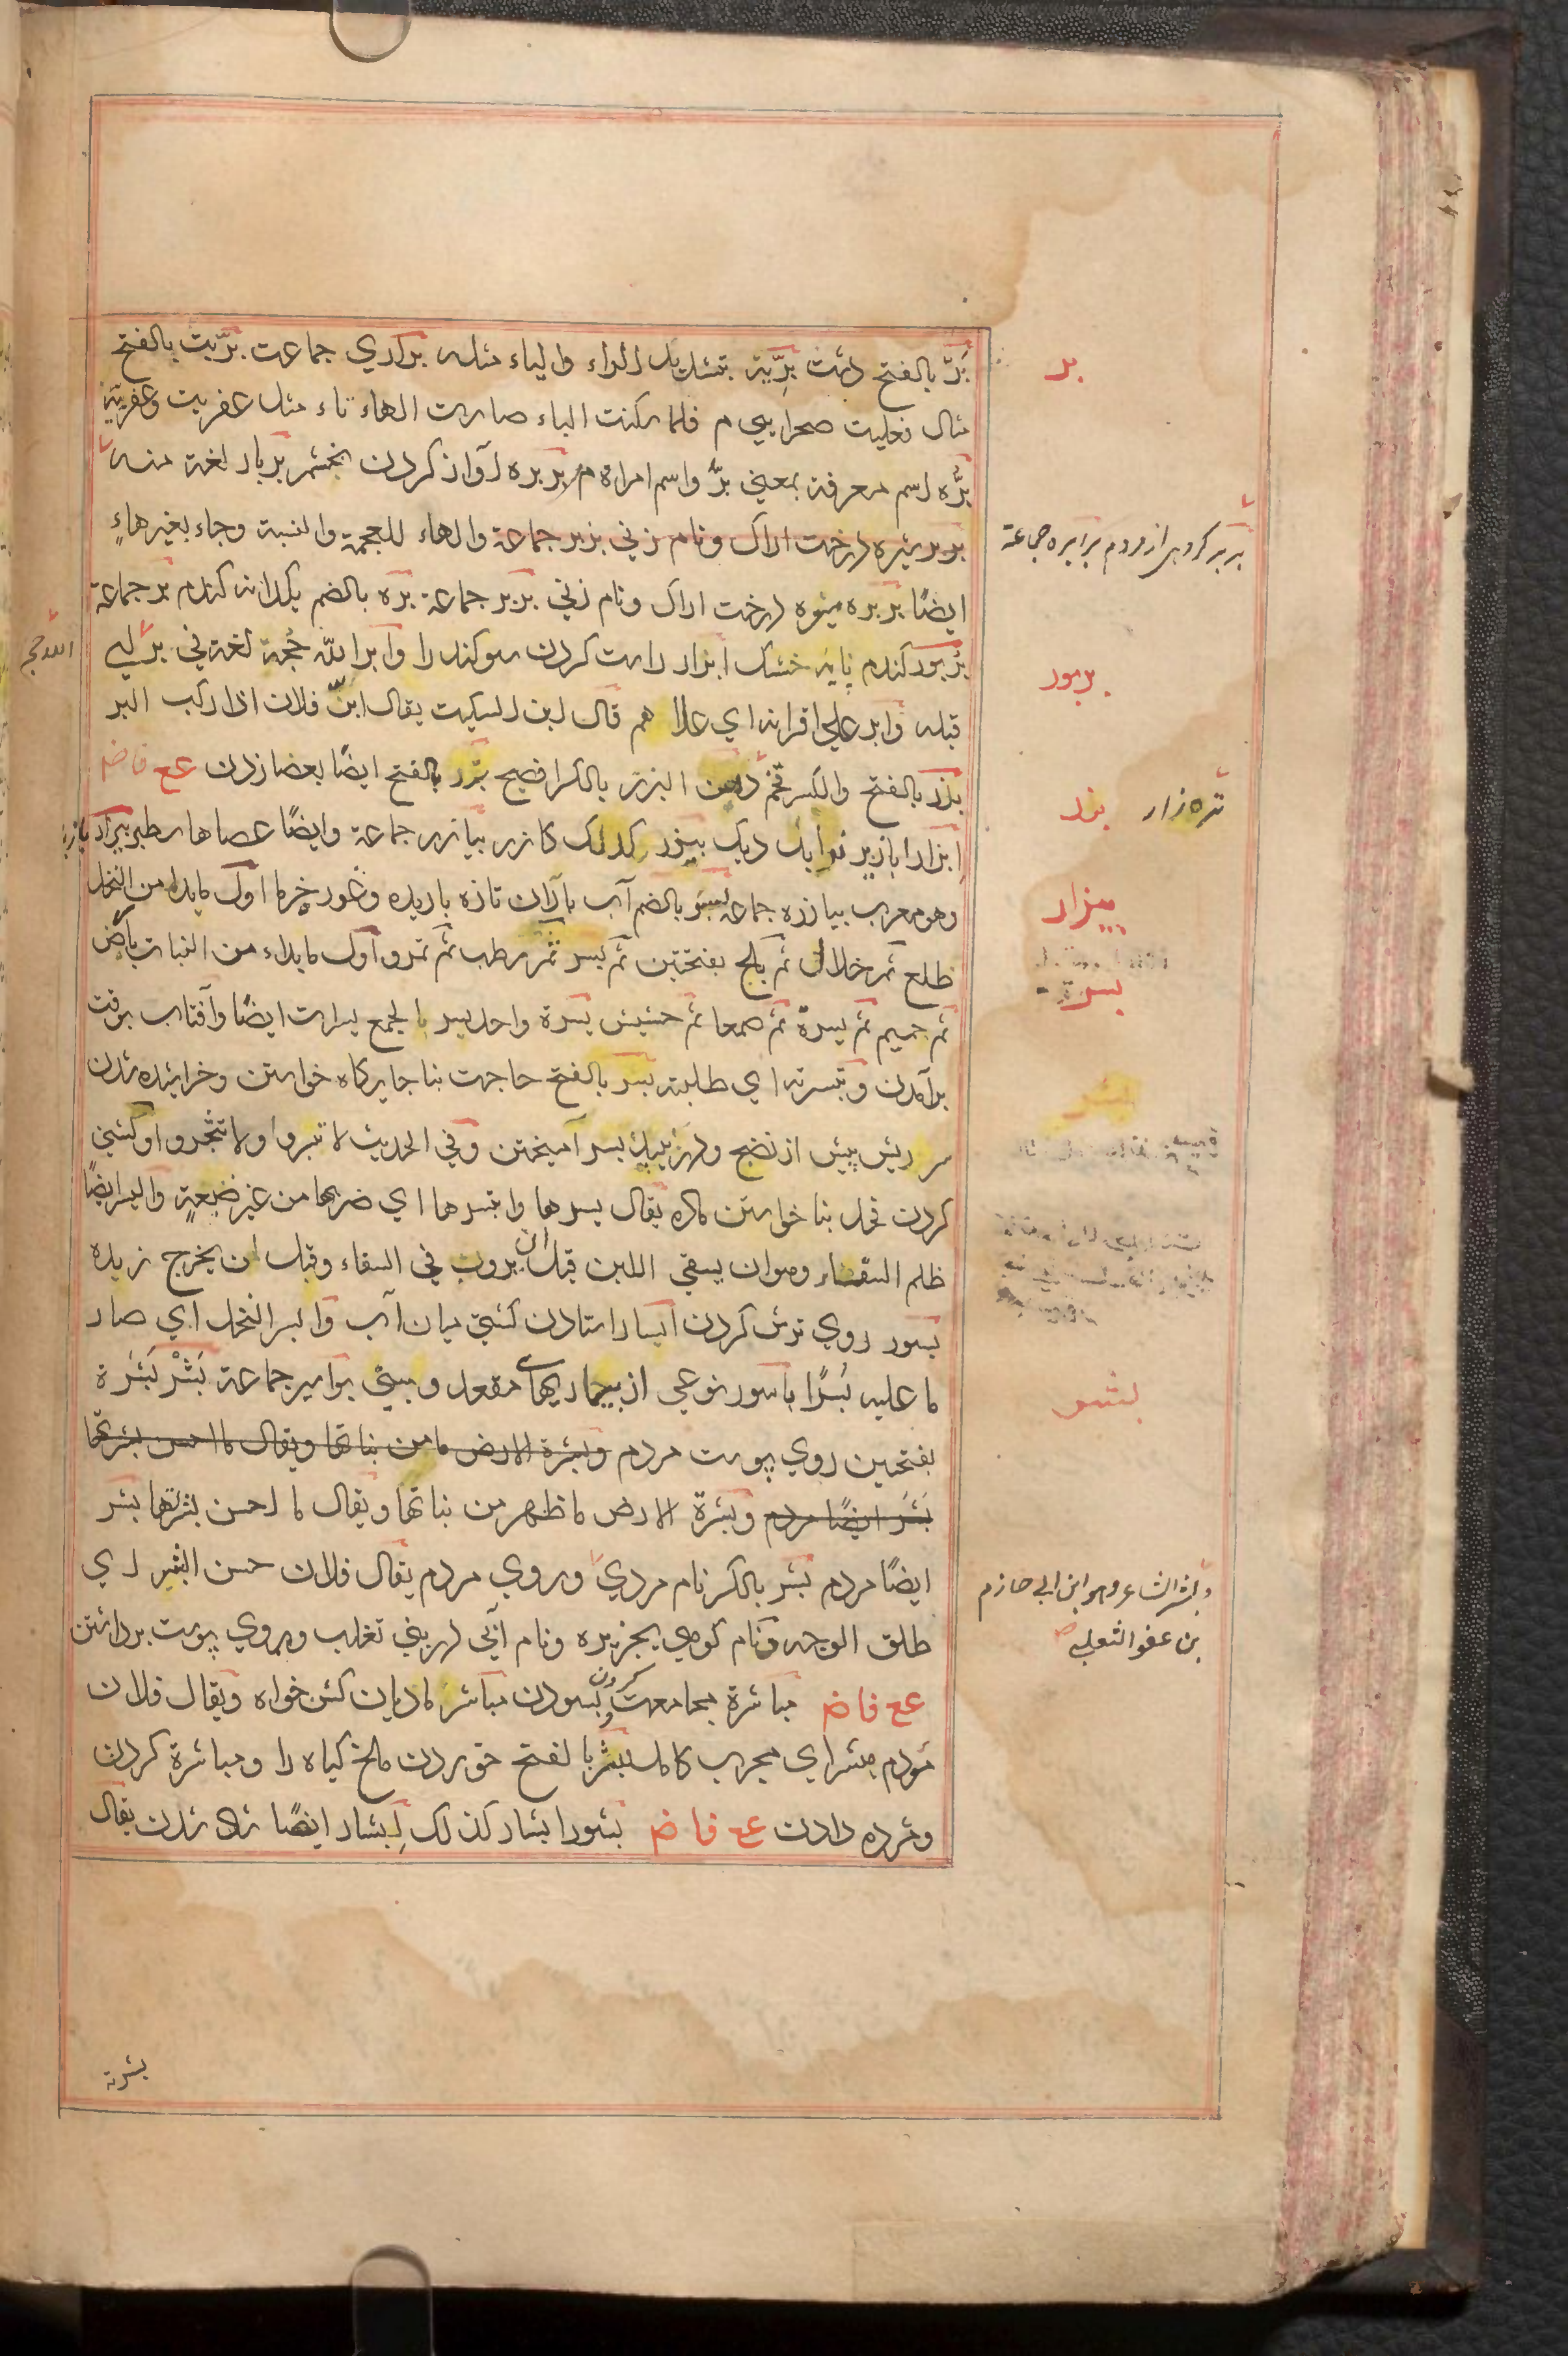 بَرّ بالفتح دشت بَرِّية بتشديد الراء والياء مثله براري جماعت برّيت بالفتح
مثال فعليت صحرا يبى م فلما سكنت الياء صارت الهاء تاء مثل عفريت وعفرية
برّه اسم معرفة بمعني برّ واسم امراة م بربره آواز كردن بخشم بربار لغة منه
برير ميره درخت اراك ونام زني بربر جماعة والهاء للعجمة والنسبة وجاء بغيرهاءٍ
ايضًا بربره ميوه درخت اراك ونام زني بربر جماعة بره بالضم يكدانه كندم بر جماعة
بربور كندم خشك ابرار راست كردن سوكند را وابر الله حجة لغة في بر اي
قبله وابر علي اقرانه اي علا هم قال ابن السكيت يقال ابرّ فلان اذا ركب البر
بزر بالفتح والكسر تخم البزر بالكسر افصح بزر بالفتح ايضًا بعصا زدن عع فاض
ابزار ابازير ديك بيزر كدلك كازر بيازر جماعة وايضًا عصاها سطبر بيزار
وهو معرب بيازره جماعة بسر بالضم آب باران تازه باريده وغور خرما اول ما يبدا من النخل
طلع ثم خلال ثم بلح بفتحتين ثم بسر ثم رطب ثم تمر واول ما يبداء من النبات بارض
ثم جميم ثم بسرة ثم صمعا ثم حشيش بسرة واحد بسر بالجمع بسرات ايضًا وآفتاب بوقت
برآمدن وتبسرته اي طلبته بسر بالفتح حاجت بنا جايگاه خواستن وخراشيده شدن
سر ريش پيش از نضج ودر بسر آميختن وفي الحديث لا تبسروا ولا تثجروا وكشني
كردن فحل بنا خواستن ماده يقال بسرها وابتسرها اي ضربها من غير ضبعةٍ والبسر ايضًا
ظلم السقاء وهو ان يسقي اللبن قبل ان يروب في السقاء وقبل ان يخرج زبده
بسور روي ترش كردن ابسار استادن كشتي ميان آب وابسر النخل اي صار
ما عليه بُسرًا باسور نوعي از بيماريهاى مقعد وبيني بواسير جماعة بَشْر بَشَرة
بفتحتين روي پوست مردم وبشرة الارض مامن بناتها ويقال ما احسن بشرتها
بَشَر ايضًا مردم وبشرة الارض ما ظهر من بناتها ويقال ما احسن بشرتها بشر
ايضًا مردم بشر بالكسر نام مردي وروي مردم يقال فلان حسن البشر اي
طلق الوجه ونام كوهي بجزيره ونام آبي در بني تغلب وبروي پوست برداشتن
عع فاض مباشرة مجامعت كردن وبسودن مباشر ماديان كشن خواه ويقال فلان
مؤدم مبشر اي مجرب كامل بشر بالفتح خوردن ملخ گياه را ومباشرة كردن
ومژده دادن عع فاض بشور ابشار كذلك ابشار ايضًا شاد شدن يقال
بر
بربر كروهى از مردم برابره جماعة
بربور
تره زار
بزر
بيزار
بسرة
بشر
وبشر الشاعر وهو ابن ابي حازم
بن عفو الثعلبي
بشرته